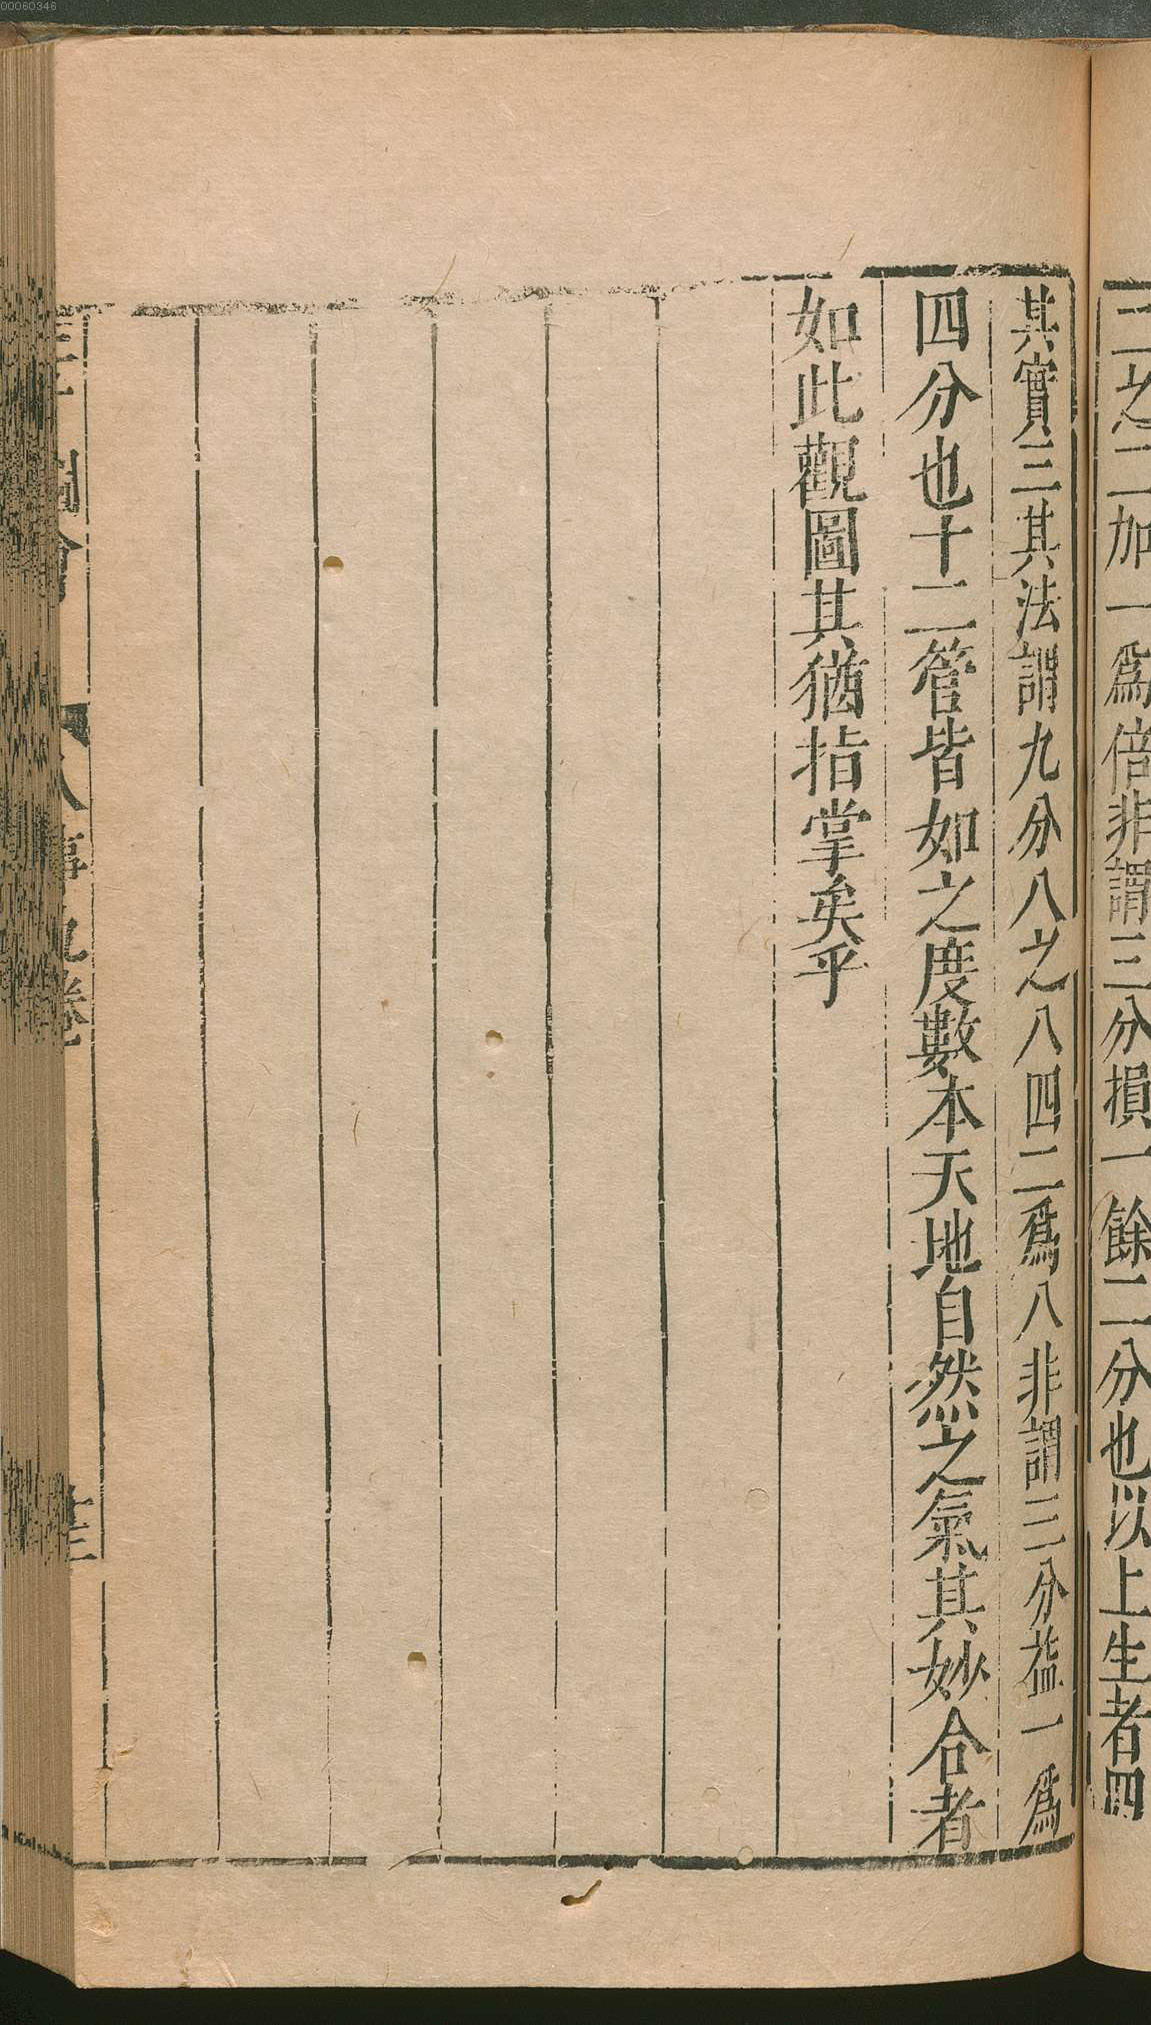 二之二加一爲倍非謂三分損一餘二分也以上生者四
其實三其法謂九分八之八四二爲八非謂三分益一爲
四分也十二管皆如之度數本天地自然之氣其妙合者
如此觀圖其猶指掌矣乎
00060346